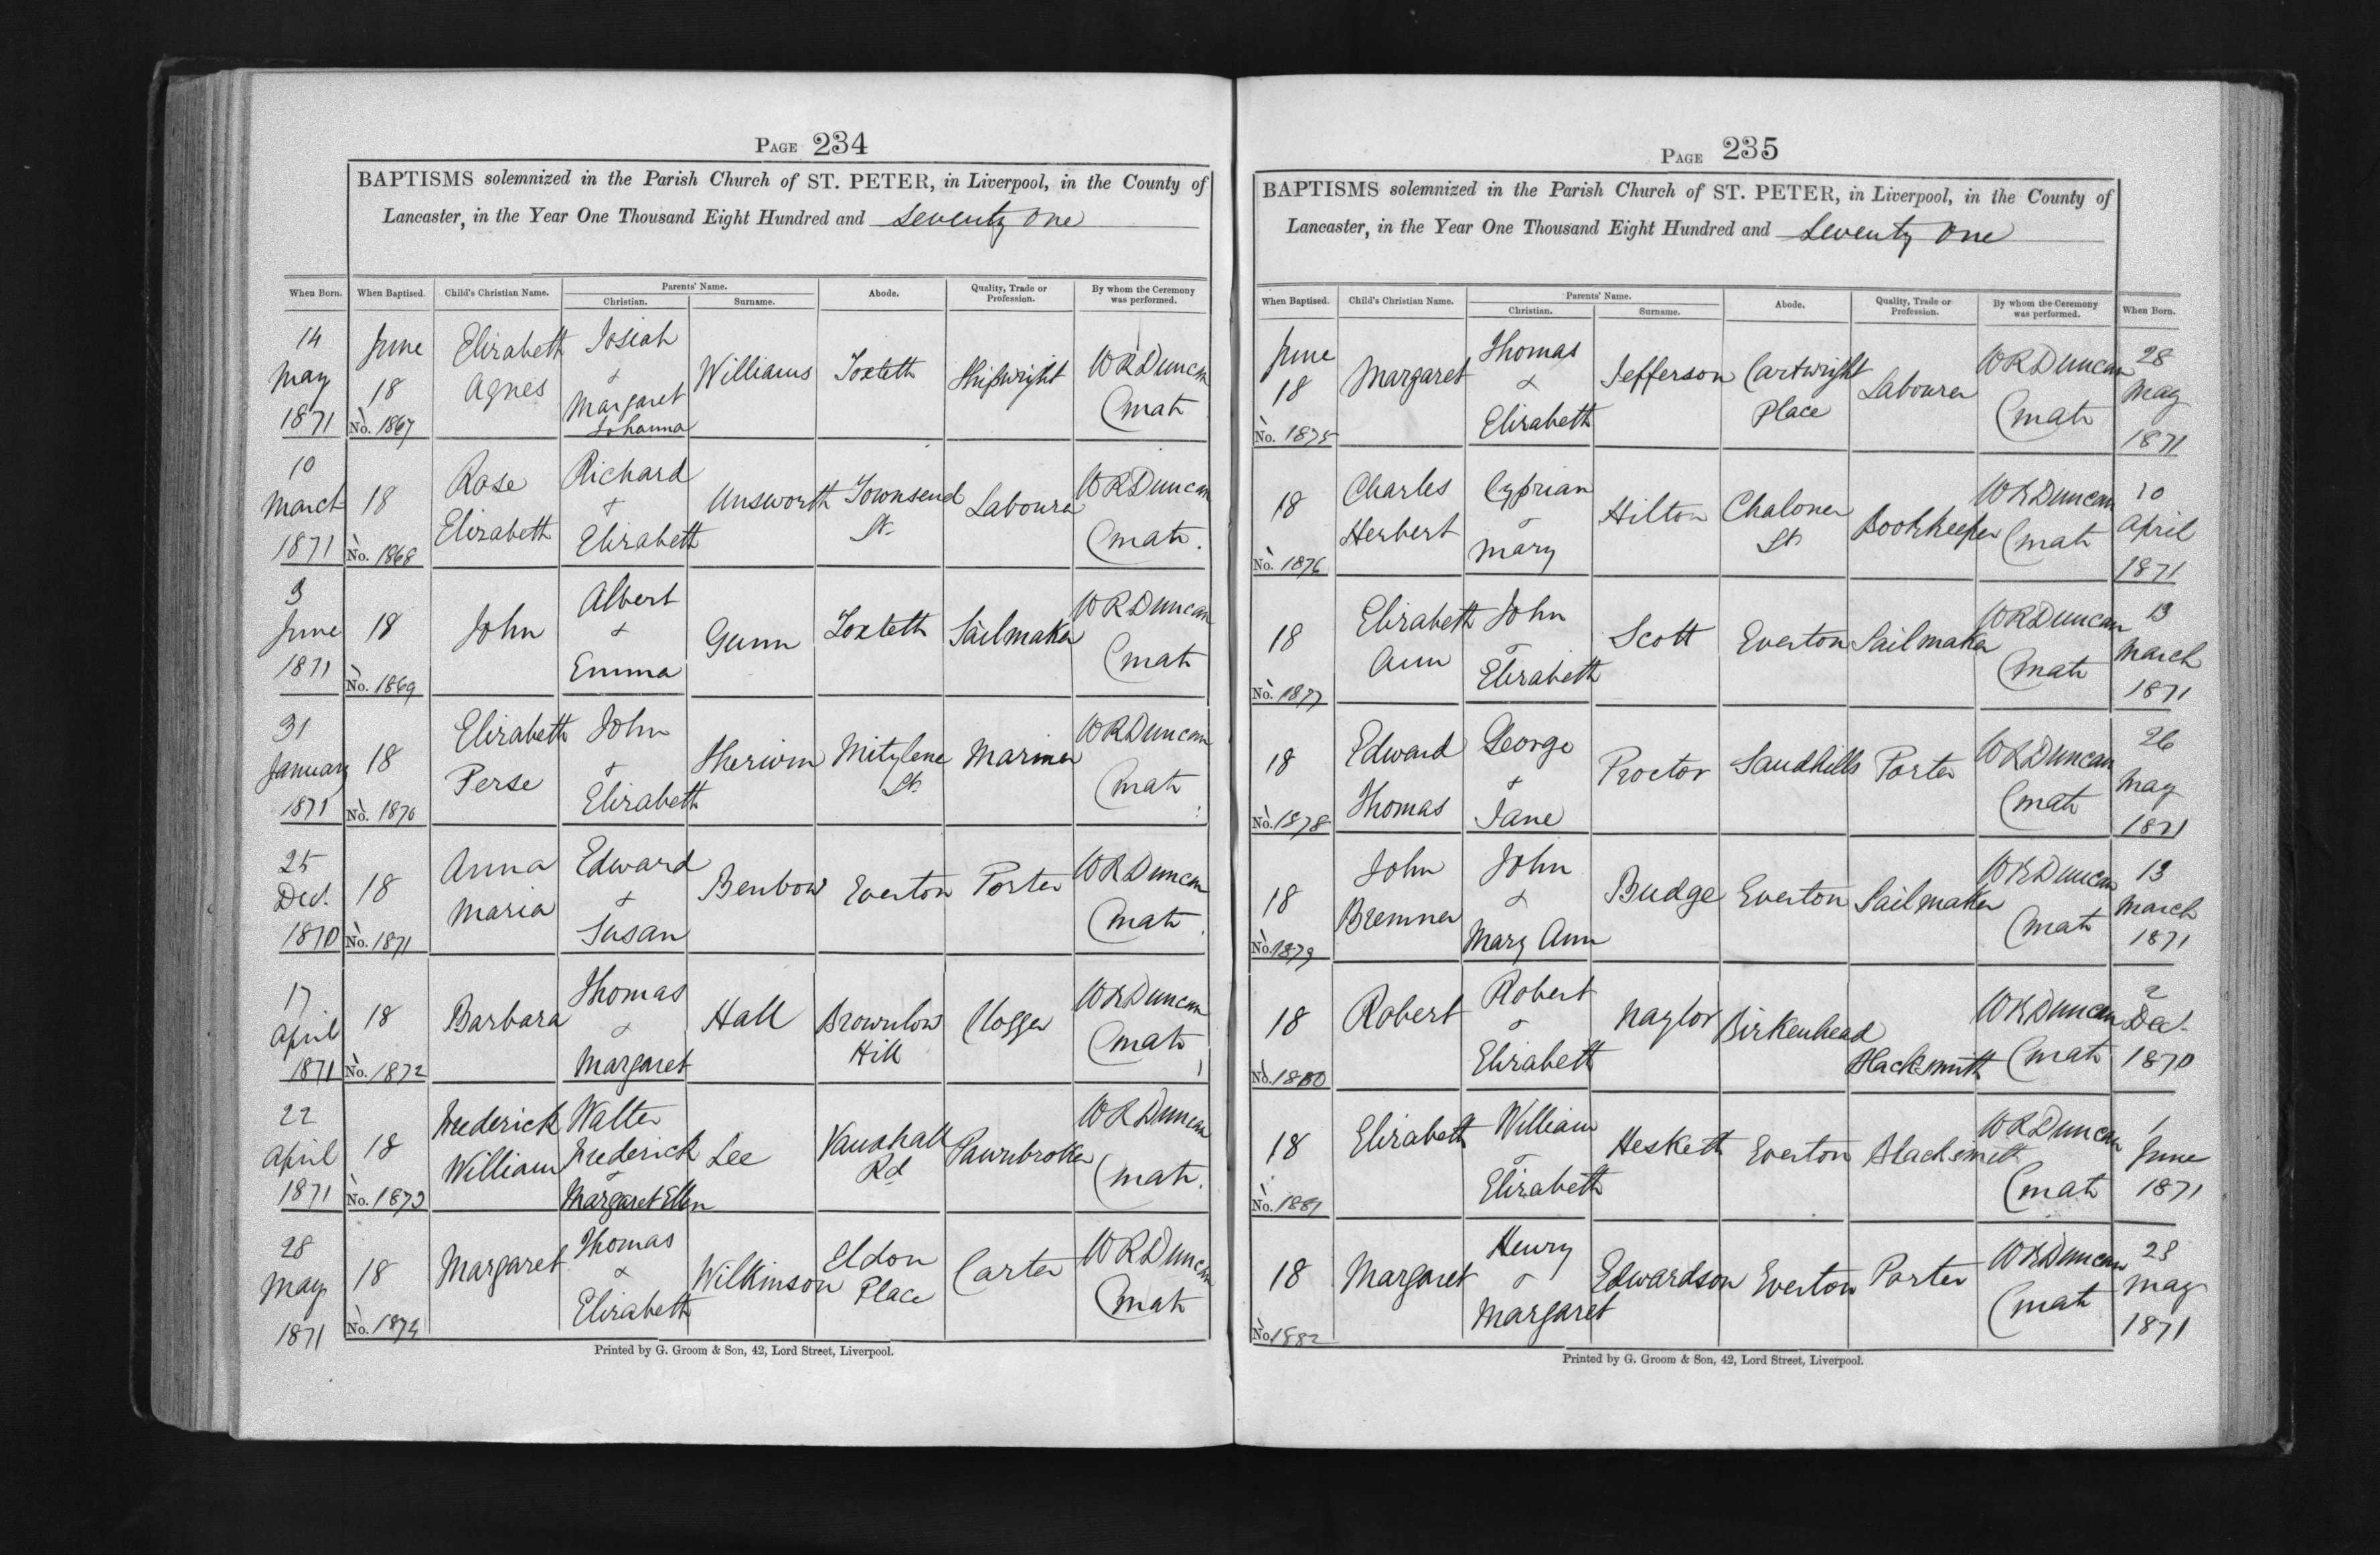 PAGE 234
BAPTISMS solemnized in the Parish Church of ST. PETER, in Liverpool, in the County of
Lancaster, in the Year One Thousand Eight Hundred and Seventy One
When Born. When Baptised. Child's Christian Name. Parents' Name. Christian. Surname. Abode. Quality, Trade or Profession. By whom the Ceremony was performed.
14 May 1871 June 18 No. 1867 Elizabeth Agnes Josiah & Margaret Johanna Williams Toxteth Shipwright W R Duncan Cmate
10 March 1871 18 No. 1868 Rose Elizabeth Richard & Elizabeth Unsworth Townsend St. Labourer W R Duncan Cmate
3 June 1871 18 No. 1869 John Albert & Emma Gunn Toxteth Sailmaker W R Duncan Cmate
31 January 1871 18 No. 1870 Elizabeth Perse John & Elizabeth Sherwin Mitylene St. Mariner W R Duncan Cmate
25 Dec. 1870 18 No. 1871 Anna Maria Edward & Susan Benbow Everton Porter W R Duncan Cmate
17 April 1871 18 No. 1872 Barbara Thomas & Margaret Hall Brownlow Hill Clogger W R Duncan Cmate
22 April 1871 18 No. 1873 Frederick William Walter Frederick & Margaret Ellen Lee Vauxhall Rd Pawnbroker W R Duncan Cmate
28 May 1871 18 No. 1874 Margaret Thomas & Elizabeth Wilkinson Eldon Place Carter W R Duncan Cmate
Printed by G. Groom & Son, 42, Lord Street, Liverpool.
PAGE 235
BAPTISMS solemnized in the Parish Church of ST. PETER, in Liverpool, in the County of
Lancaster, in the Year One Thousand Eight Hundred and Seventy One
When Baptised. Child's Christian Name. Parents' Name. Christian. Surname. Abode. Quality, Trade or Profession. By whom the Ceremony was performed. When Born.
June 18 No. 1875 Margaret Thomas & Elizabeth Jefferson Cartwright Place Labourer W R Duncan Cmate 28 May 1871
18 No. 1876 Charles Herbert Cyprian & Mary Hilton Chaloner St Bookkeeper W R Duncan Cmate 10 April 1871
18 No. 1877 Elizabeth Ann John & Elizabeth Scott Everton Sailmaker W R Duncan Cmate 13 March 1871
18 No. 1878 Edward Thomas George & Jane Proctor Sandhills Porter W R Duncan Cmate 26 May 1871
18 No. 1879 John Bremner John & Mary Ann Budge Everton Sailmaker W R Duncan Cmate 13 March 1871
18 No. 1880 Robert Robert & Elizabeth Naylor Birkenhead Blacksmith W R Duncan Cmate 2 Dec. 1870
18 No. 1881 Elizabeth William & Elizabeth Hesketh Everton Blacksmith W R Duncan Cmate 1 June 1871
18 No. 1882 Margaret Henry & Margaret Edwardson Everton Porter W R Duncan Cmate 28 May 1871
Printed by G. Groom & Son, 42, Lord Street, Liverpool.